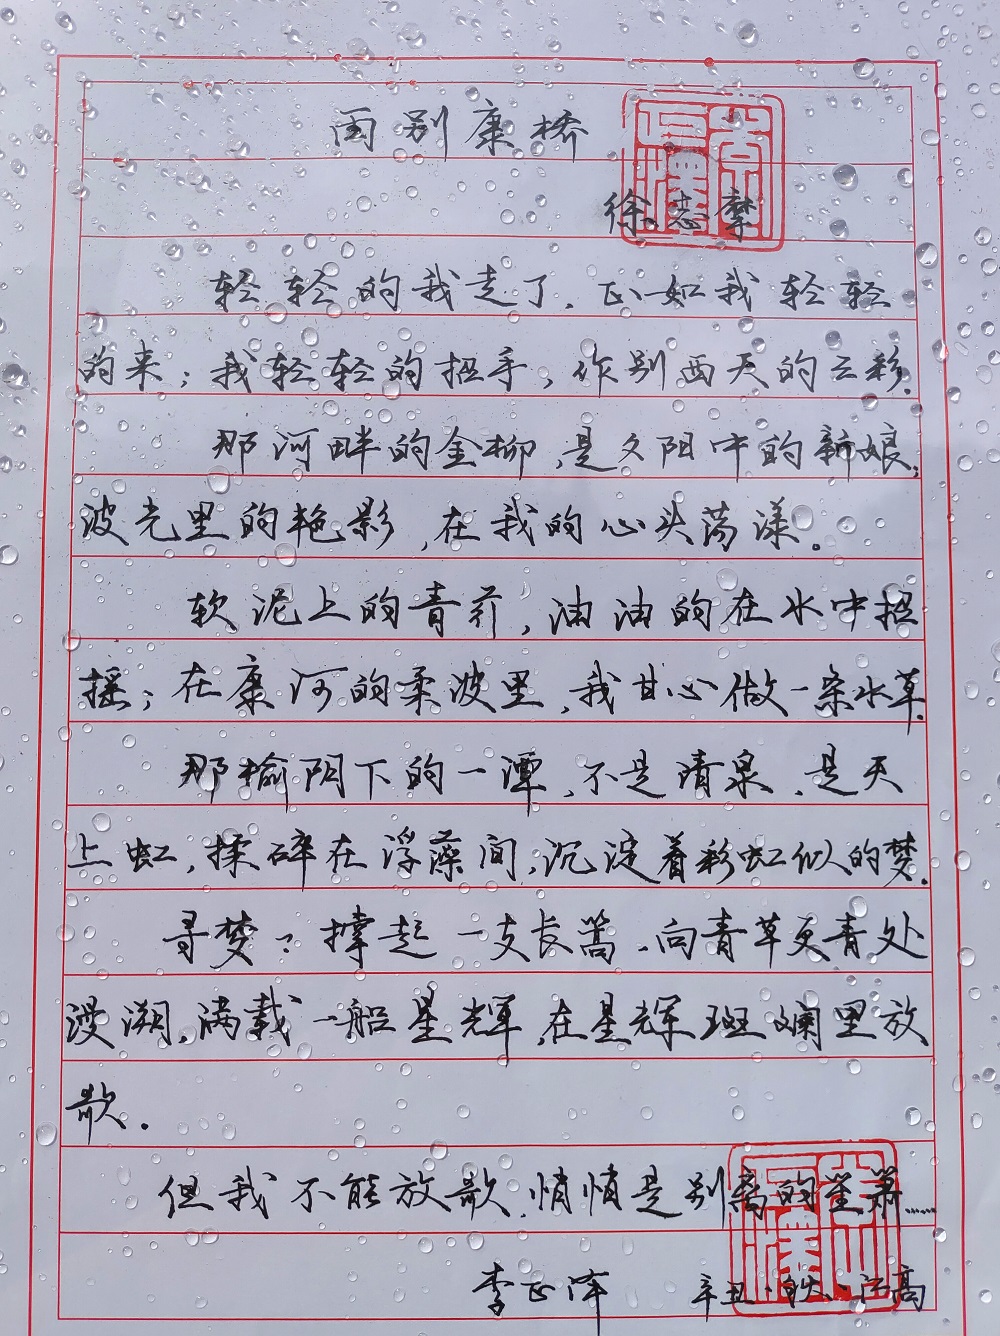 再别康桥
徐志摩
轻轻的我走了，正如我轻轻
的来；我轻轻的招手，作别西天的云彩。
那河畔的金柳，是夕阳中的新娘；
波光里的艳影，在我的心头荡漾。
软泥上的青荇，油油的在水中招
摇；在康河的柔波里，我甘心做一条水草。
那榆阴下的一潭，不是清泉，是天
上虹，揉碎在浮藻间，沉淀着彩虹似的梦。
寻梦？撑起一支长篙，向青草更青处
漫溯，满载一船星辉，在星辉斑斓里放
歌。
但我不能放歌，悄悄是别离的笙箫……
李正泽 辛丑·秋·江高